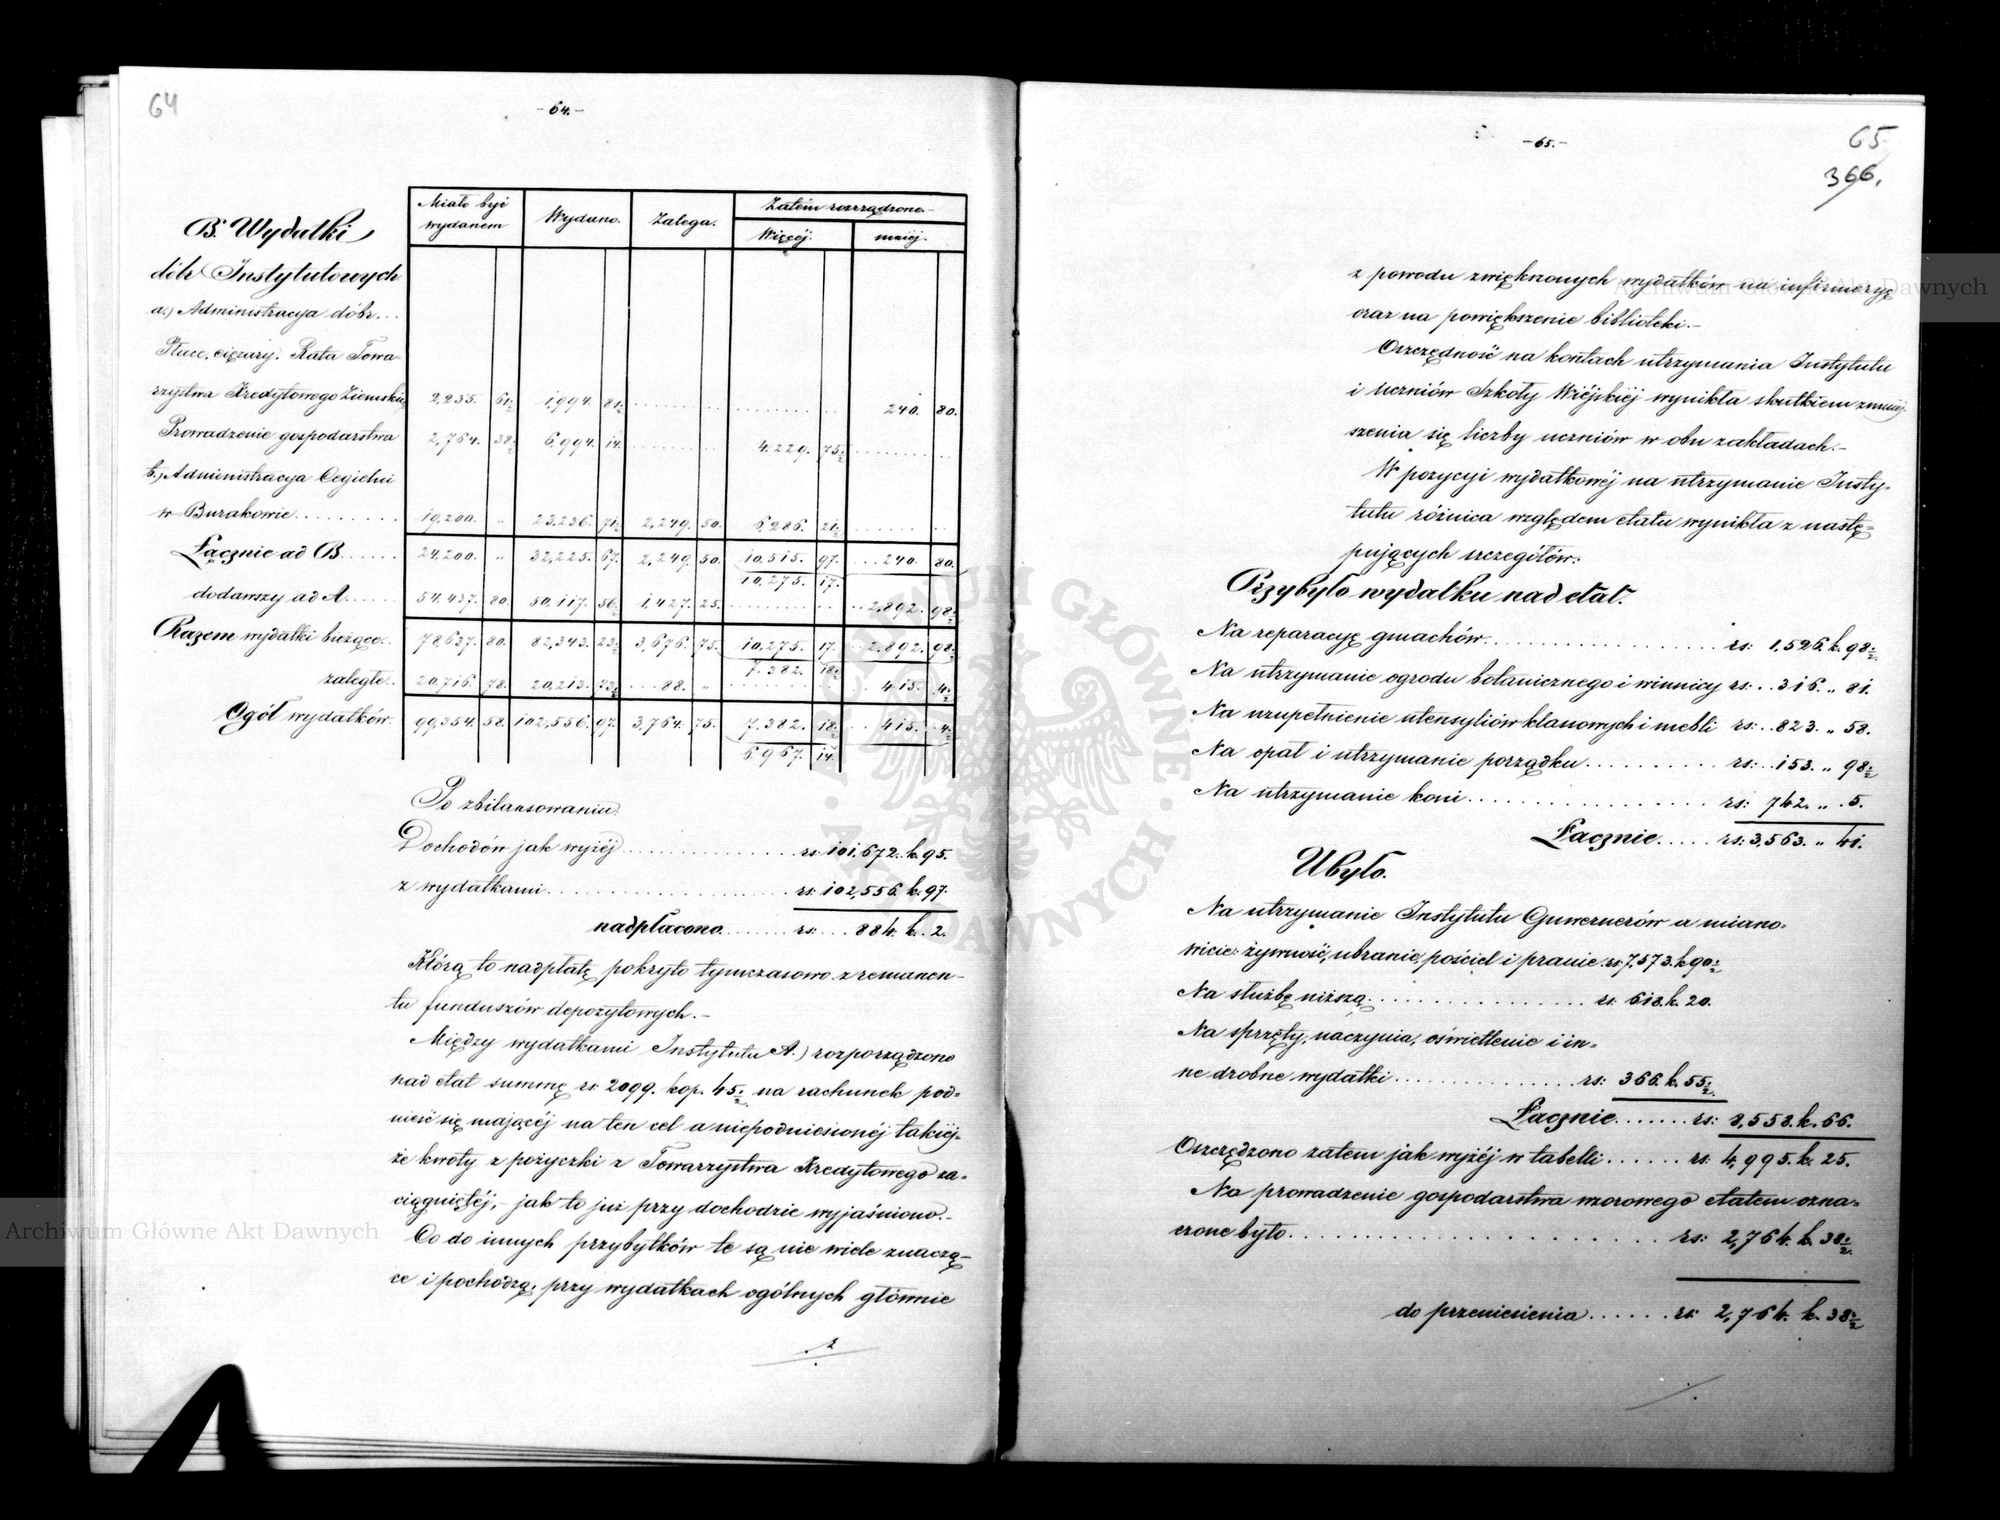 64
- 64. -
B. Wydatki
dóbr Instytutowych
Miało być wydanem | Wydano. | Zalega. | Zatem rozrządzono.
Więcéj. | mniéj.
a.) Administracya dóbr...
Płace, ciężary, Rata Towa-
rzystwa Kredytowego Ziemskie | 2,235. 61½ | 1,994. 81½ | ........ | ........ | 240. 80.
Prowadzenie gospodarstwa | 2,764. 38½ | 6,994. 14. | ........ | 4,229. 75½ | ........
b.) Administracya Cegielni
w Burakowie.......... | 19,200. " | 23,236. 71½ | 2,249. 50. | 6,286. 21½ | ........
Łącznie ad B...... | 24,200. " | 32,225. 67. | 2,249. 50. | 10,515. 97. | ...240. 80.
10,275. 17.
dodawszy ad A...... | 54,437. 80. | 50,117. 56½ | 1,427. 25. | ........ | ..2,892. 98½
Razem wydatki bieżące.. | 78,637. 80. | 82,343. 23½ | 3,676. 75. | 10,275. 17. | ..2,892. 98½
7,382. 18½
zaległe.. | 20,716. 78. | 20,213. 73½ | ...88. " | ........ | ..415. 4½
Ogół wydatków. | 99,354. 58. | 102,556. 97. | 3,764. 75. | 7,382. 18½ | ..415. 4½
6,967. 14.
Po zbilansowaniu.
Dochodów jak wyżéj.................. rs: 101,672. k. 95.
z wydatkami...................... rs: 102,556. k. 97.
nadpłacono........ rs: ...884. k. 2.
Którą to nadpłatę pokryto tymczasowo z remanen-
tu funduszów depozytowych. -
Między wydatkami Instytutu A.) rozporządzono
nad etat summę rs: 2099. kop. 45½ na rachunek pod=
nieść się mającéj na ten cel a niepodniesionéj takiéj=
że kwoty z pożyczki z Towarzystwa Kredytowego za=
ciągniętéj, - jak to już przy dochodzie wyjaśniono. -
Co do innych przybytków te są nie wiele znaczą-
ce i pochodzą, przy wydatkach ogólnych głównie
z
- 65. -
65
366.
z powodu zwiększonych wydatków na infirmeryę
oraz na powiększenie biblioteki. -
Oszczędność na kontach utrzymania Instytutu
i uczniów Szkoły Wiéjskiéj wynikła skutkiem zmniéj-
szenia się liczby uczniów w obu zakładach. -
W pozycyi wydatkowéj na utrzymanie Insty-
tutu różnica względem etatu wynikła z nastę=
pujących szczegółów:
Przybyło wydatku nad etat.
Na reparacyę gmachów...................... rs: 1,526. k. 98½
Na utrzymanie ogrodu botanicznego i winnicy rs: ..316. " 81.
Na uzupełnienie utensyliów klassowych i mebli rs: ..823. " 58.
Na opał i utrzymanie porządku............ rs: ..153. " 98½
Na utrzymanie koni...................... rs: 742. " . 5.
Łącznie..... rs: 3,563. " 41.
Ubyło.
Na utrzymanie Instytutu Guwernerów a miano=
wicie: żywność, ubranie, pościel i pranie. rs: 7,573. k. 90½
Na służbę niższą................... rs: 618. k. 20.
Na sprzęty, naczynia, oświetlenie i in=
ne drobne wydatki.................. rs: 366. k. 55½
Łącznie....... rs: 8,558. k. 66.
Oszczędzono zatem jak wyżéj w tabelli...... rs: 4,995. k. 25.
Na prowadzenie gospodarstwa wzorowego etatem ozna=
czone było............................ rs: 2,764. k. 38½
do przeniesienia...... rs: 2,764. k. 38½
Archiwum Główne Akt Dawnych
Archiwum Główne Akt Dawnych
ARCHIWUM GŁÓWNE · AKT DAWNYCH ·